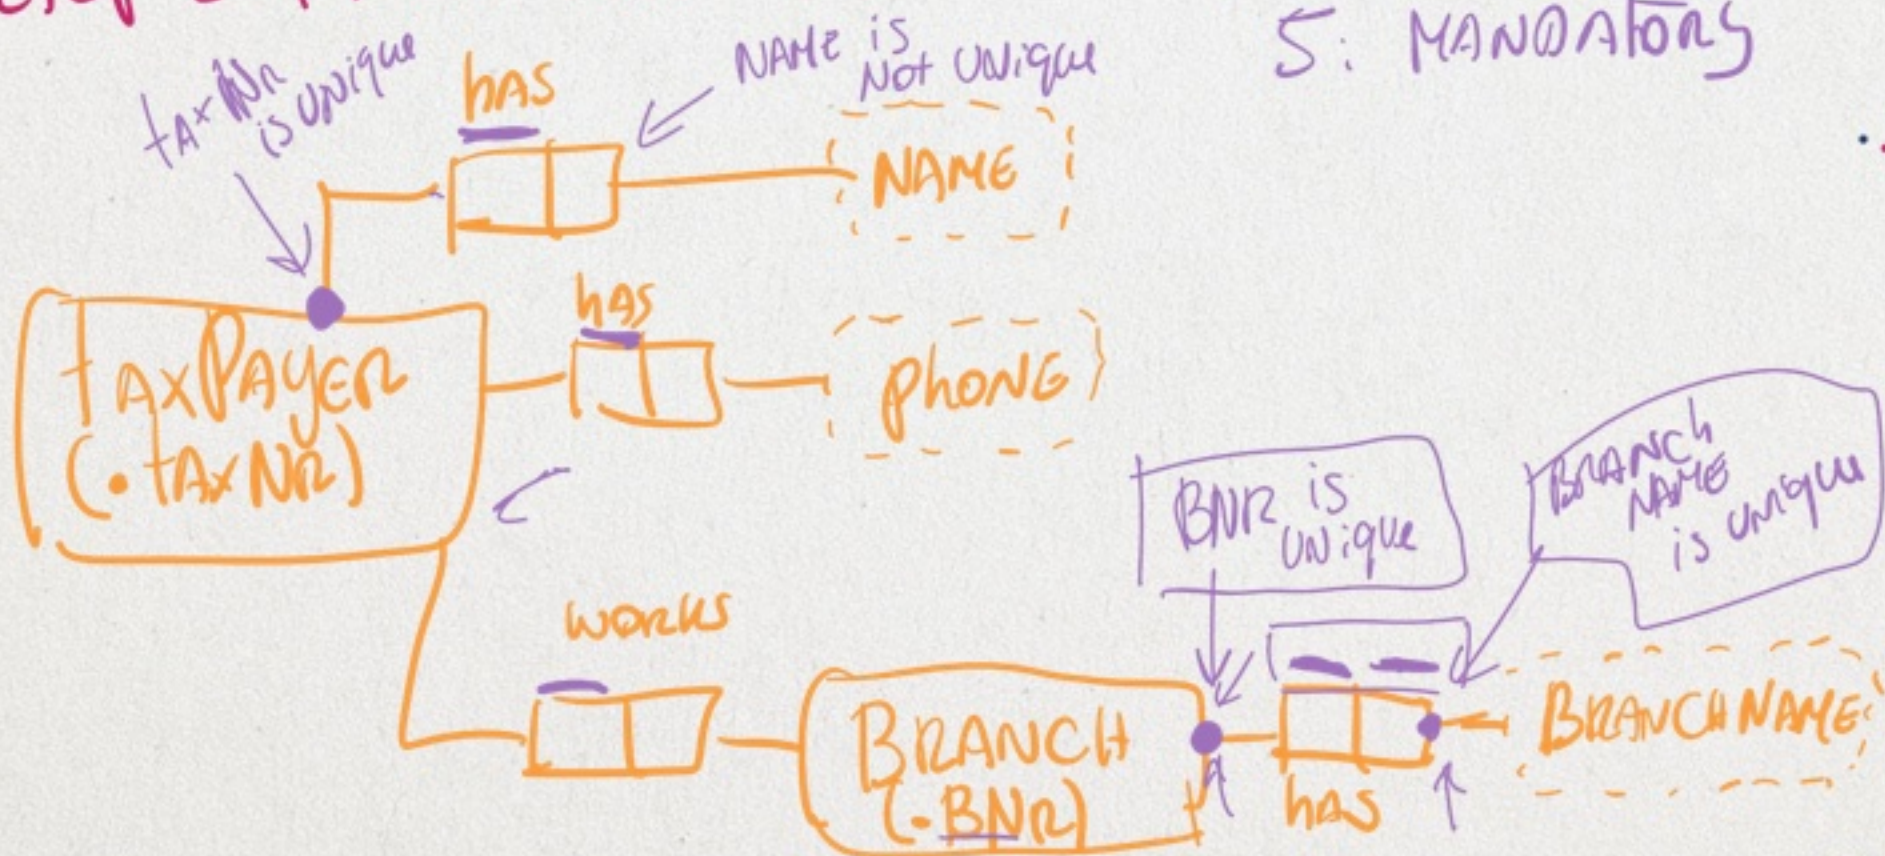 5: MANDATORY
tAx NR
is UNique
hAS
NAME is
Not UNique
NAME
hAS
tAxPAyER
(. tAxNR)
PhONE
BNR is
UNique
BRANCh
NAME
is UNique
WORKS
BRANCH
(. BNR)
hAS
BRANCHNAME